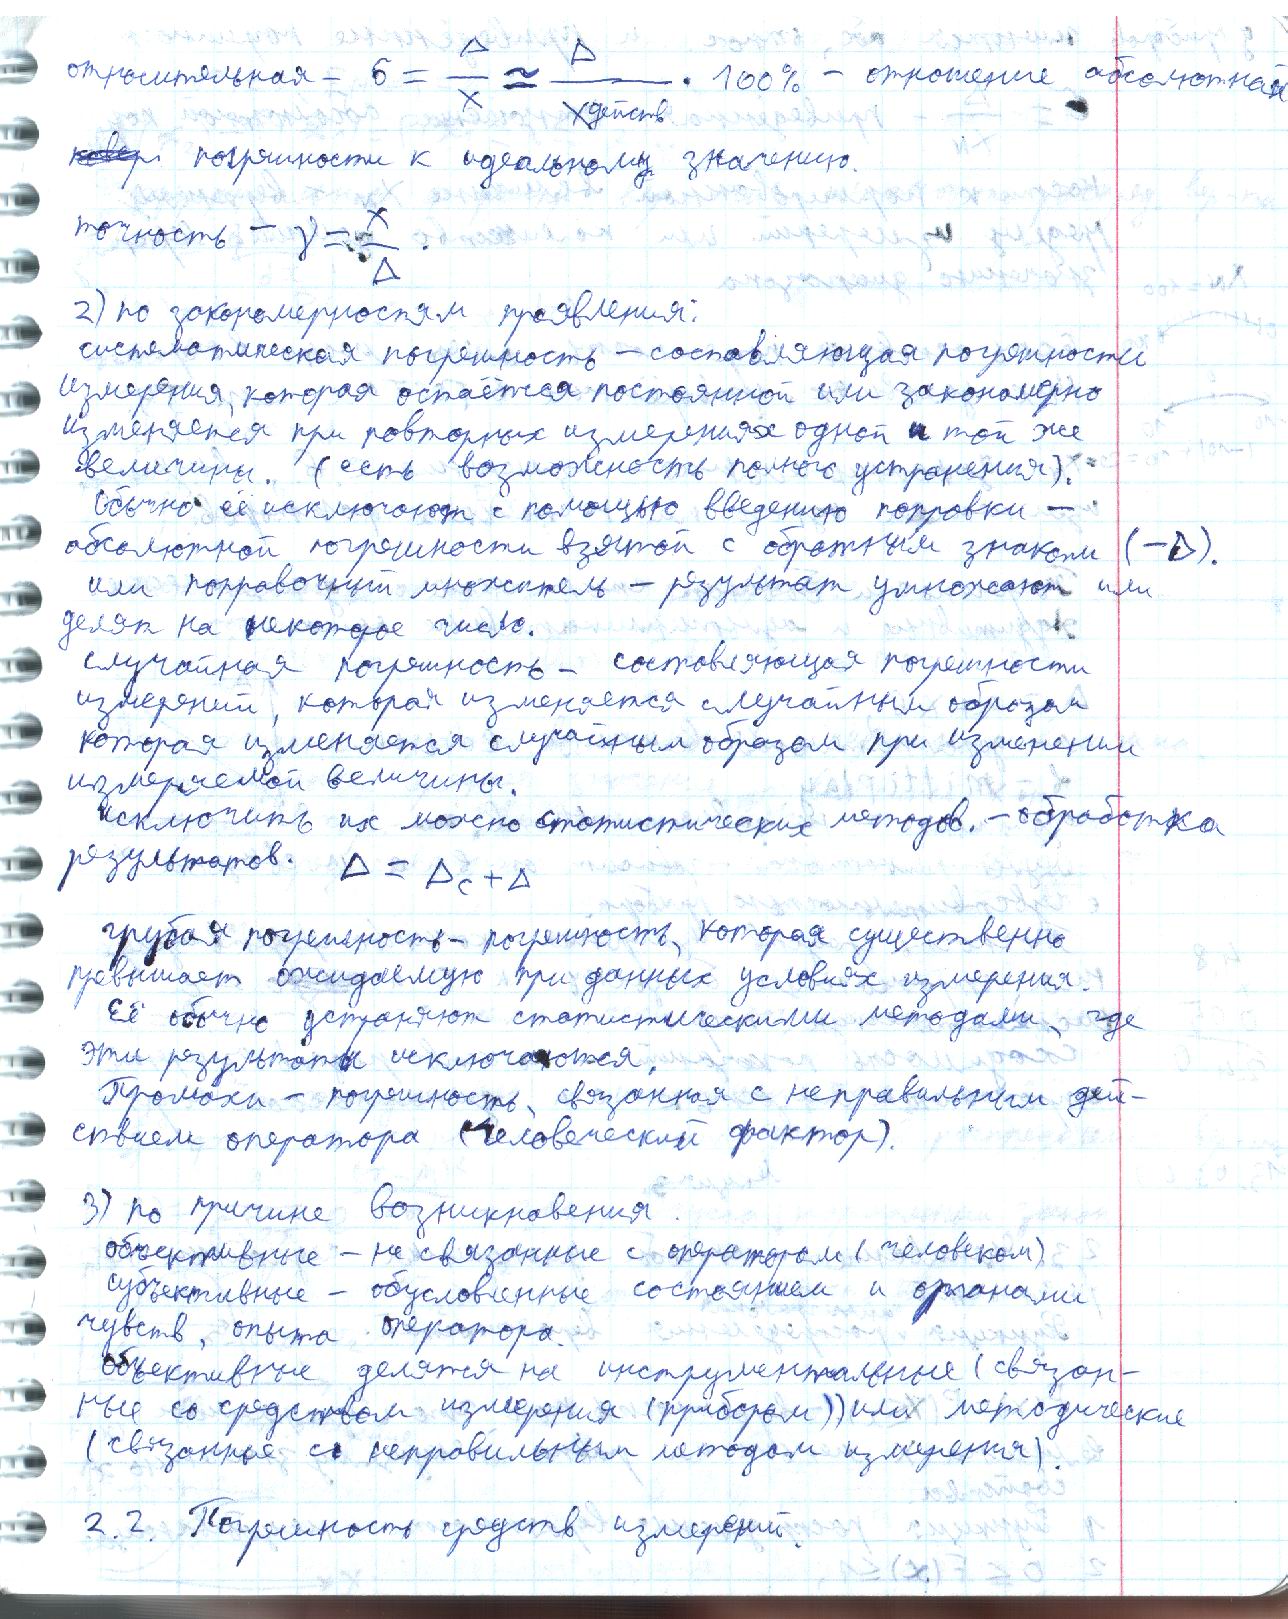 относительная – δ = Δ/X ≈ Δ/Xдейств · 100% – отношение абсолютной
погрешности к идеальному значению.
точность – γ = X/Δ.
2) по закономерностям проявления:
систематическая погрешность – составляющая погрешности
измерения, которая остаётся постоянной или закономерно
изменяется при повторных измерениях одной и той же
величины. (есть возможность полного устранения).
Обычно её исключают с помощью введению поправки –
абсолютной погрешности взятой с обратным знаком (–Δ).
или поправочный множитель – результат умножают или
делят на некоторое число.
случайная погрешность – составляющая погрешности
измерений, которая изменяется случайным образом
которая изменяется случайным образом при изменении
измеряемой величины.
исключить их можно статистических методов. – обработка
результатов. Δ = Δс + Δ
грубая погрешность – погрешность, которая существенно
превышает ожидаемую при данных условиях измерения.
Её обычно устраняют статистическими методами, где
эти результаты исключаются.
Промахи – погрешность, связанная с неправильным дей-
ствием оператора (человеческий фактор).
3) по причине возникновения.
объективные – не связанные с оператором (человеком)
субъективные – обусловленные состоянием и органами
чувств, опыта оператора.
объективные делятся на инструментальные (связан-
ные со средством измерения (прибором)) или методические
(связанные с неправильным методом измерения).
2.2. Погрешность средств измерений.